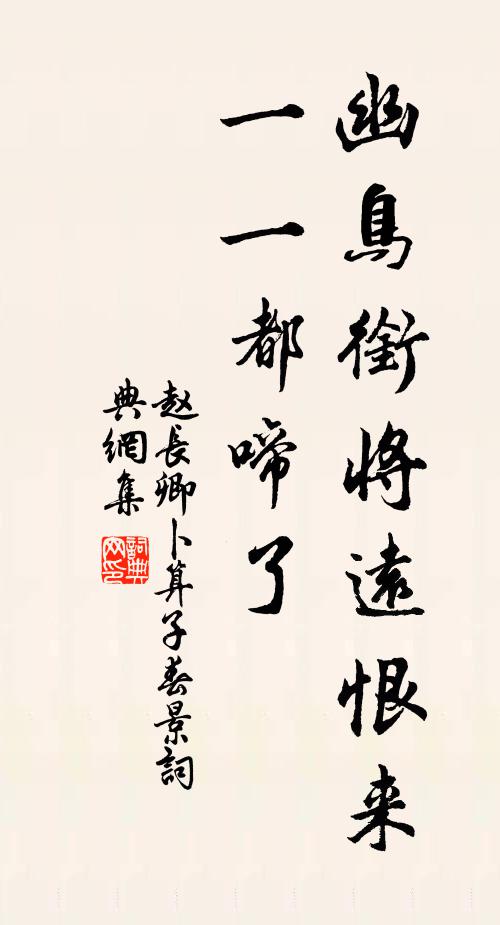 幽鳥銜將遠恨来
一一都啼了
赵長卿卜算子春景詞
典網集
詞典网印